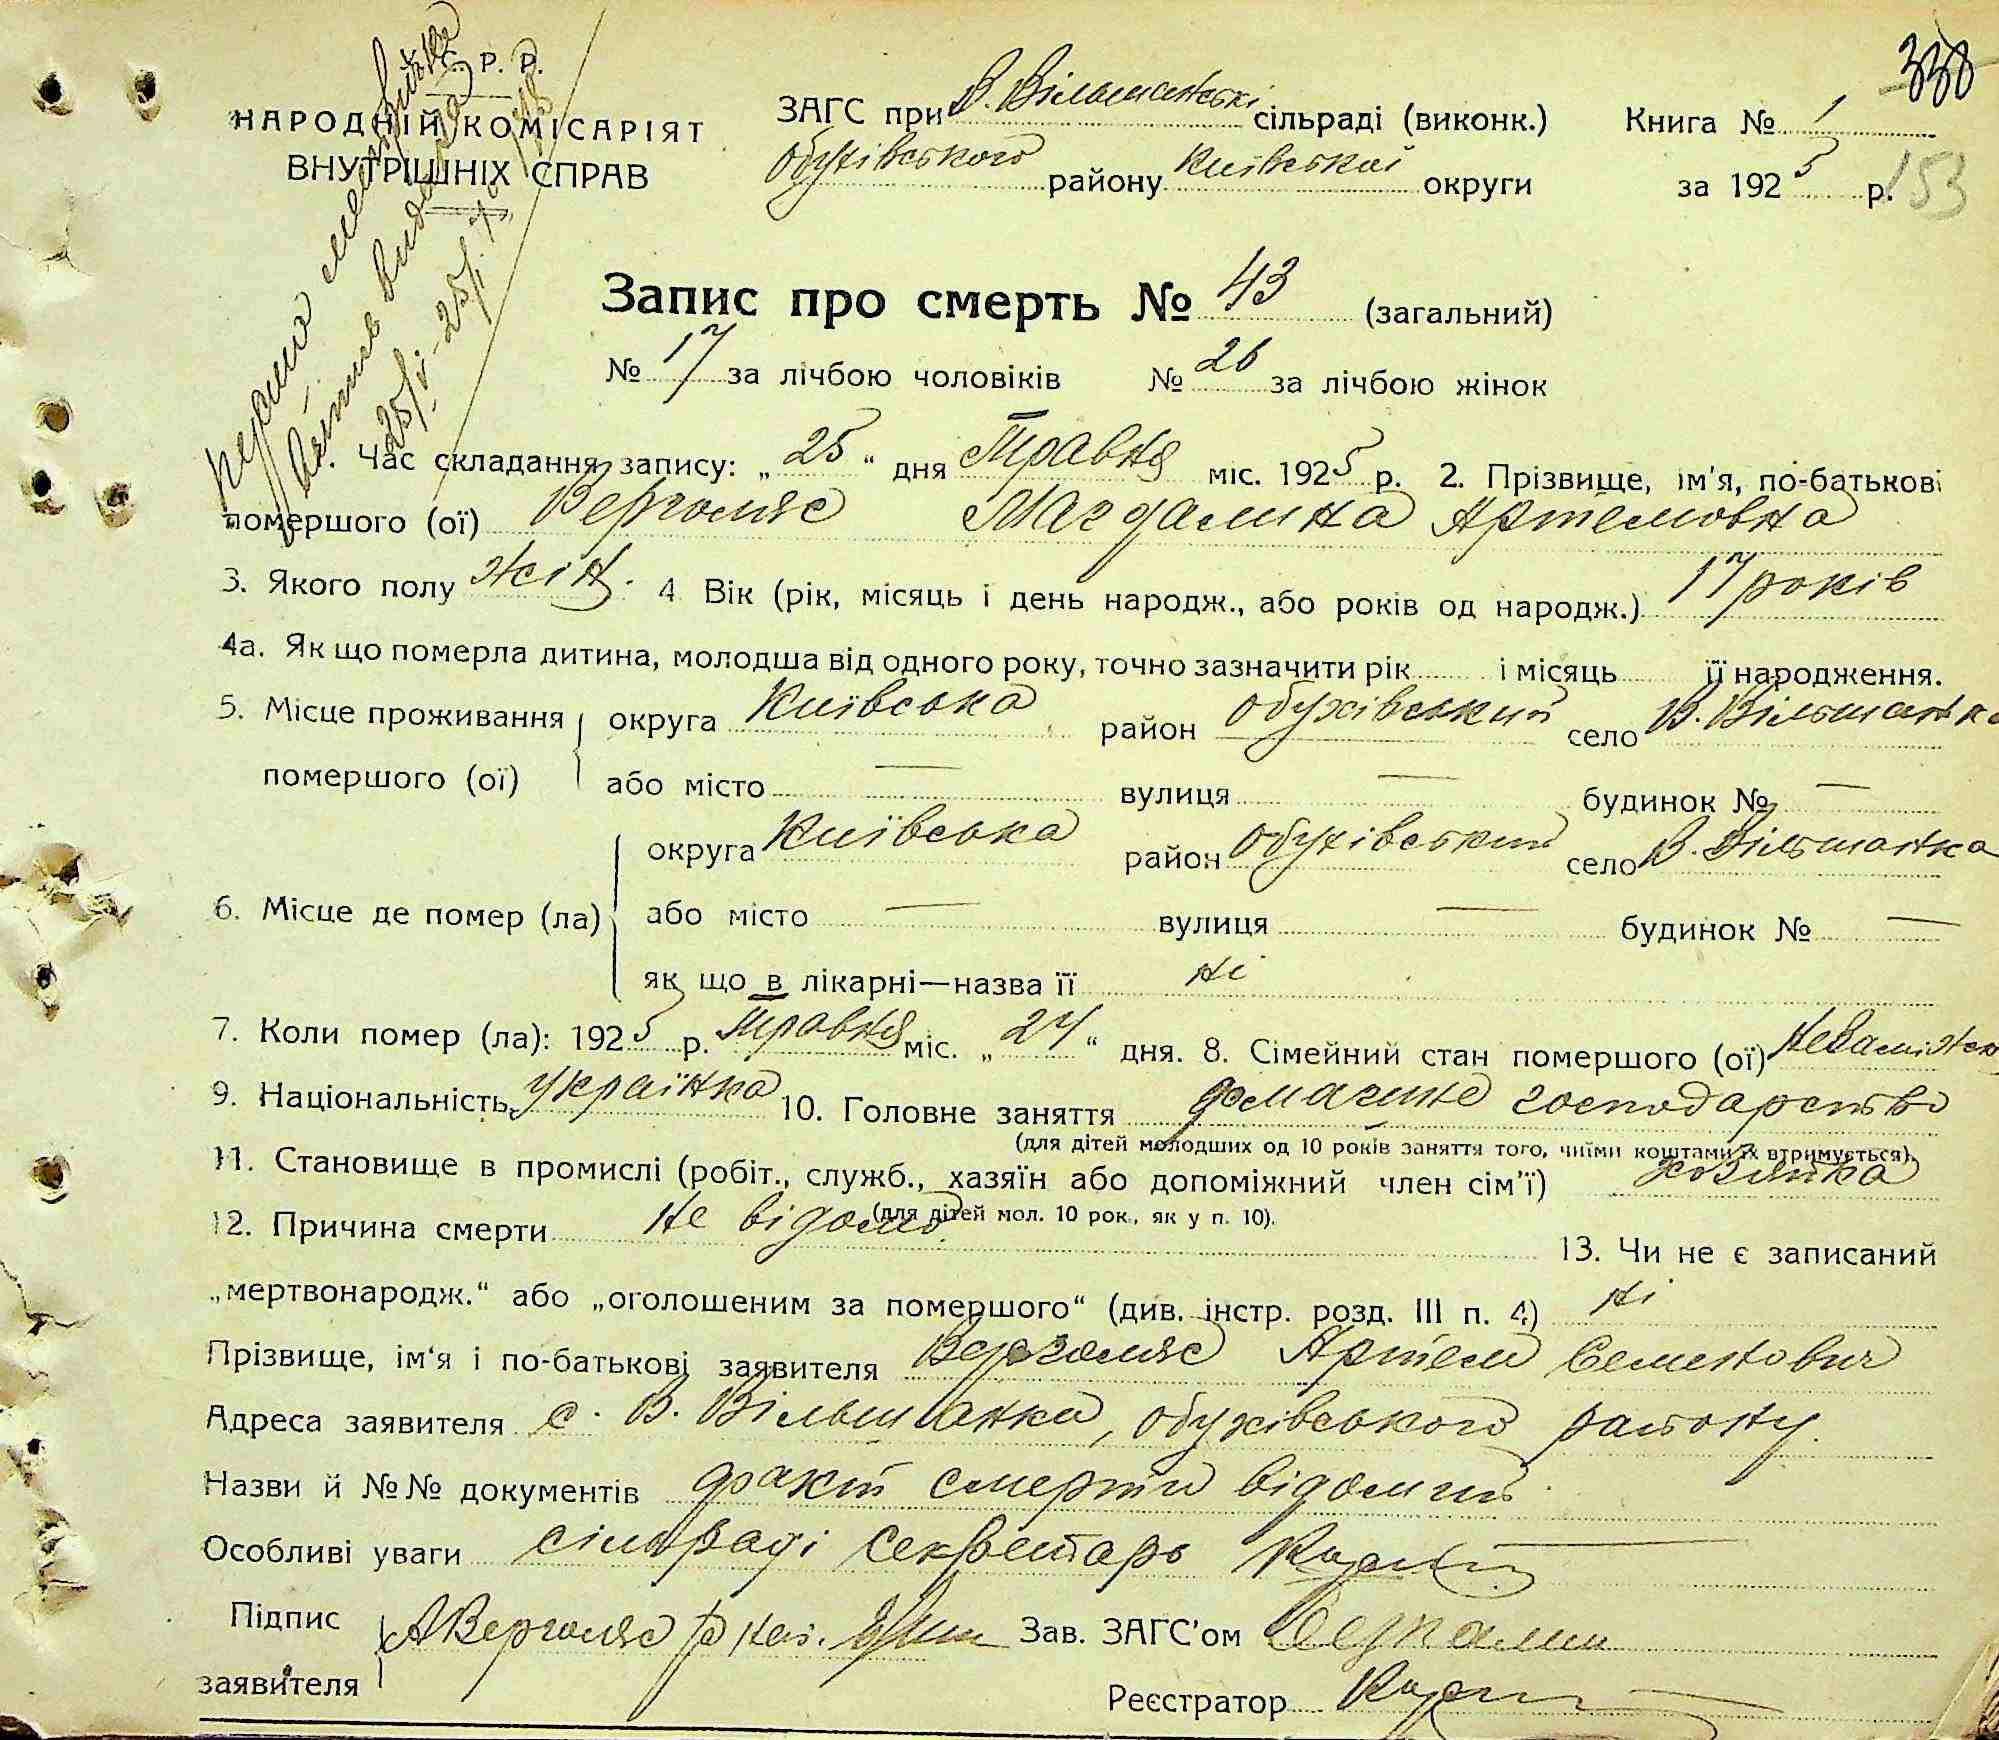 338
Р. Р.
НАРОДНІЙ КОМІСАРІЯТ
ВНУТРІШНІХ СПРАВ
ЗАГС при В. Вільшанські сільраді (виконк.) Книга № 1
Обухівського району Київської округи за 1925 р. 153
Запис про смерть № 43 (загальний)
№ 17 за лічбою чоловіків № 26 за лічбою жінок
1. Час складання запису: „25“ дня Травня міс. 1925 р. 2. Прізвище, ім'я, по-батькові
помершого (ої) Верголяс Магдалина Артемовна
3. Якого полу жін. 4 Вік (рік, місяць і день народж., або років од народж.) 17 років
4а. Як що померла дитина, молодша від одного року, точно зазначити рік і місяць її народження.
5. Місце проживання округа Київська район Обухівський село В. Вільшанка
помершого (ої) або місто — вулиця — будинок № —
округа Київська район Обухівський село В. Вільшанка
6. Місце де помер (ла) або місто — вулиця — будинок № —
як що в лікарні—назва її ні
7. Коли помер (ла): 1925 р. Травня міс. „24“ дня. 8. Сімейний стан помершого (ої)
9. Національність Українка 10. Головне заняття домашнє господарство
(для дітей молодших од 10 років заняття того, чиїми коштами їх втримується).
11. Становище в промислі (робіт., служб., хазяїн або допоміжний член сім'ї) хозяйка
(для дітей мол. 10 рок., як у п. 10).
12. Причина смерти не відомо 13. Чи не є записаний
„мертвонародж.“ або „оголошеним за помершого“ (див. інстр. розд. III п. 4) ні
Прізвище, ім'я і по-батькові заявителя Верголяс Артем Семенович
Адреса заявителя с. В. Вільшанка, Обухівського району.
Назви й №№ документів факт смерти відомий
Особливі уваги сільраді Секретарь
Підпис АВерголяс Зав. ЗАГС'ом
заявителя
Реєстратор